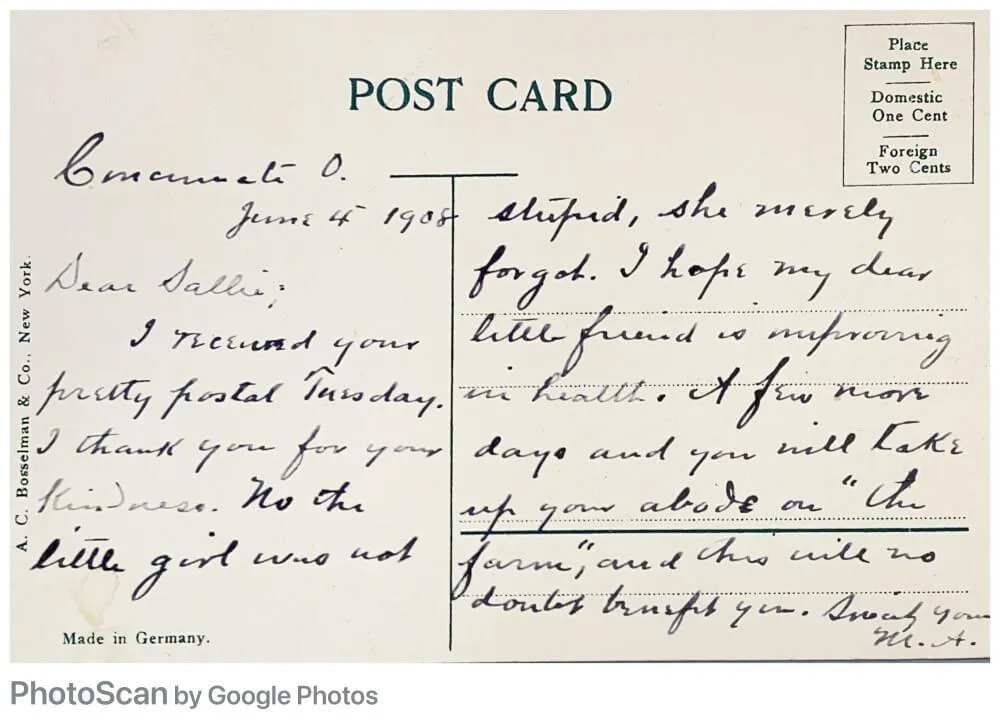 POST CARD
Place
Stamp Here
Domestic
One Cent
Foreign
Two Cents
A. C. Bosselman & Co., New York.
Cincinnati O.
June 4 1908
Dear Sallie;
I received your
pretty postal Tuesday.
I thank you for your
kindness. No the
little girl was not
stupid, she merely
forgot. I hope my dear
little friend is improving
in health. A few more
days and you will take
up your abode on "the
farm", and this will no
doubt benefit you.
M. A.
Made in Germany.
PhotoScan by Google Photos